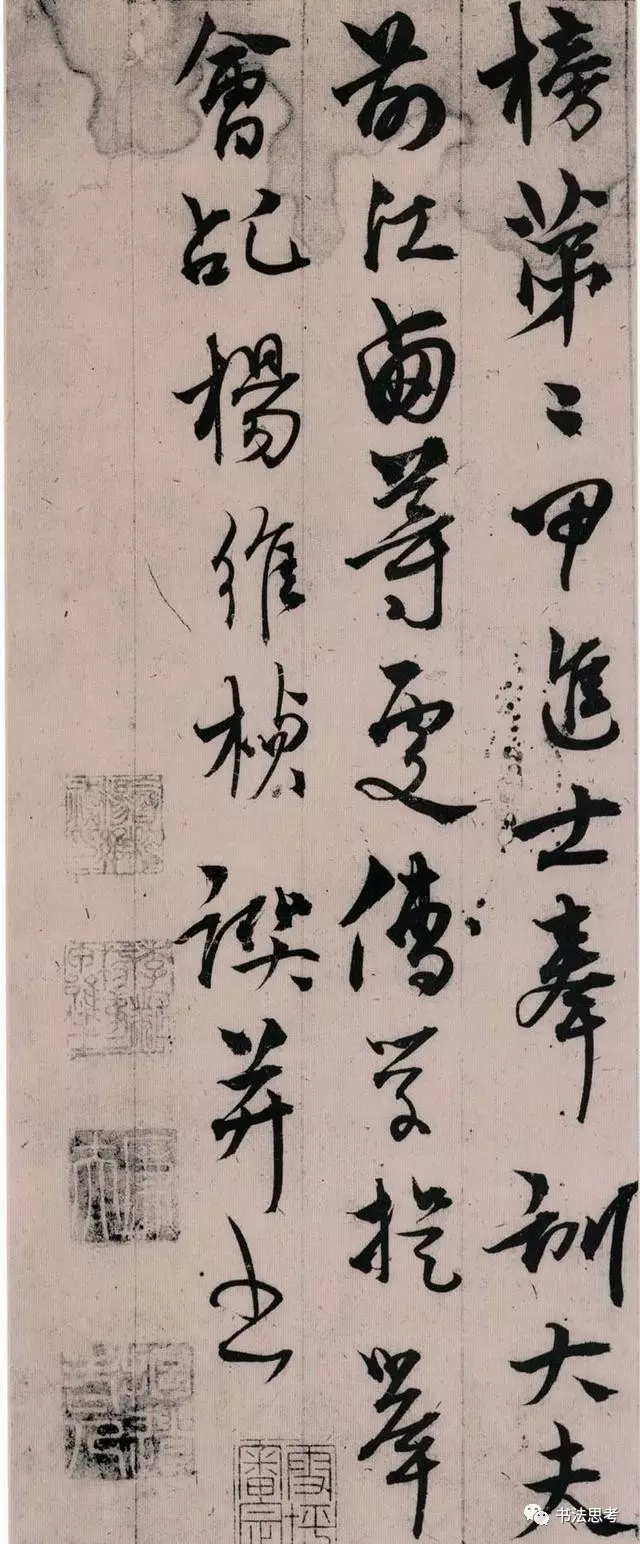 榜第二甲進士奉訓大夫
前江西等處儒學提舉
會稽楊維楨譔并書
書法思考